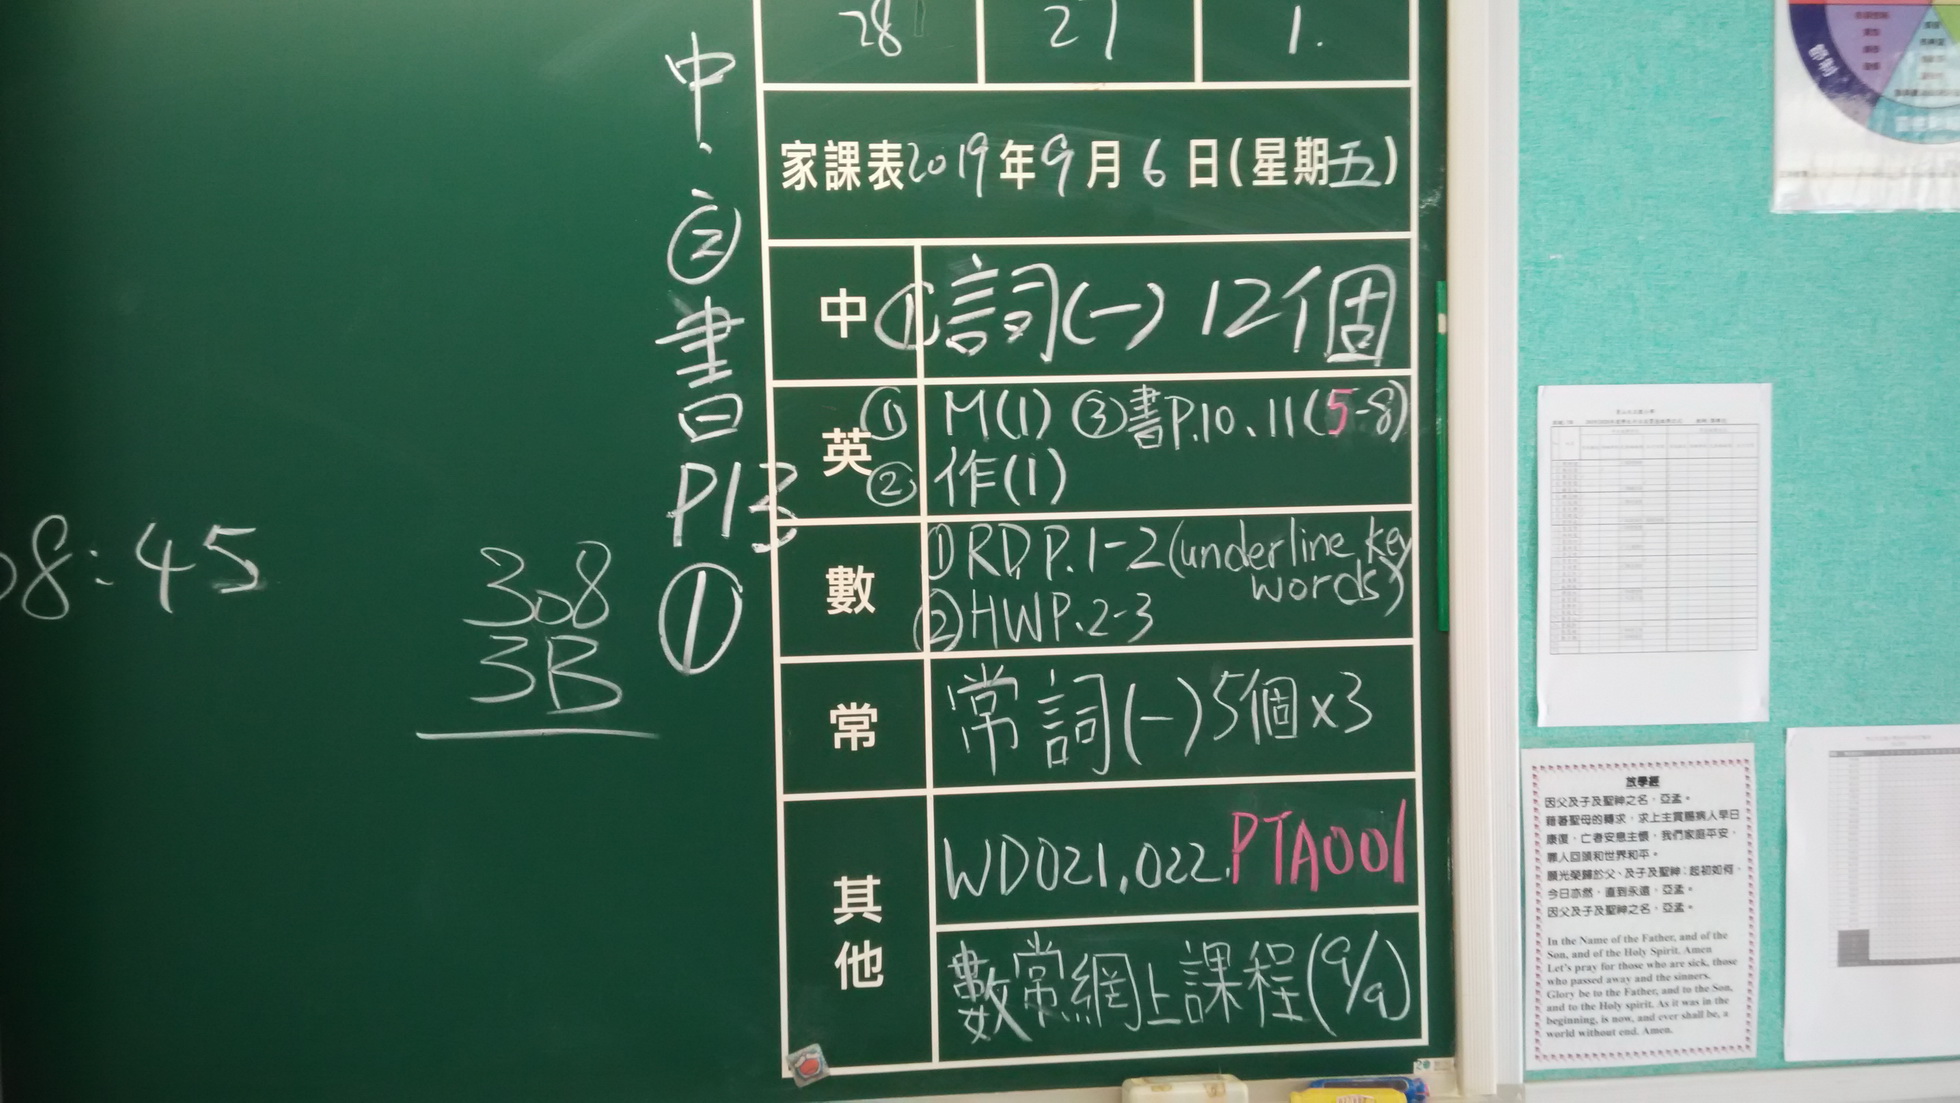 28 27 1.
家課表2019年9月6日(星期五)
中 ①詞(一) 12個
英 ① M(1) ③書P.10、11(5-8)
② 作(1)
數 ①RD,P.1-2(underline key
words)
②HWP.2-3
常 常詞(一)5個x3
其他 WD021,022,PTA001
數常網上課程(9/9)
中
②
書
P13
①
08:45
308
3B
節制
放學經
因父及子及聖神之名，亞孟。
藉著聖母的轉求，求上主賞賜病人早日
康復，亡者安息主懷，我們家庭平安，
罪人回頭和世界和平。
願光榮歸於父、及子及聖神；起初如何，
今日亦然，直到永遠，亞孟。
因父及子及聖神之名，亞孟。
In the Name of the Father, and of the
Son, and of the Holy Spirit. Amen
Let's pray for those who are sick, those
who passed away and the sinners.
Glory be to the Father, and to the Son,
and to the Holy spirit. As it was in the
beginning, is now, and ever shall be, a
world without end. Amen.